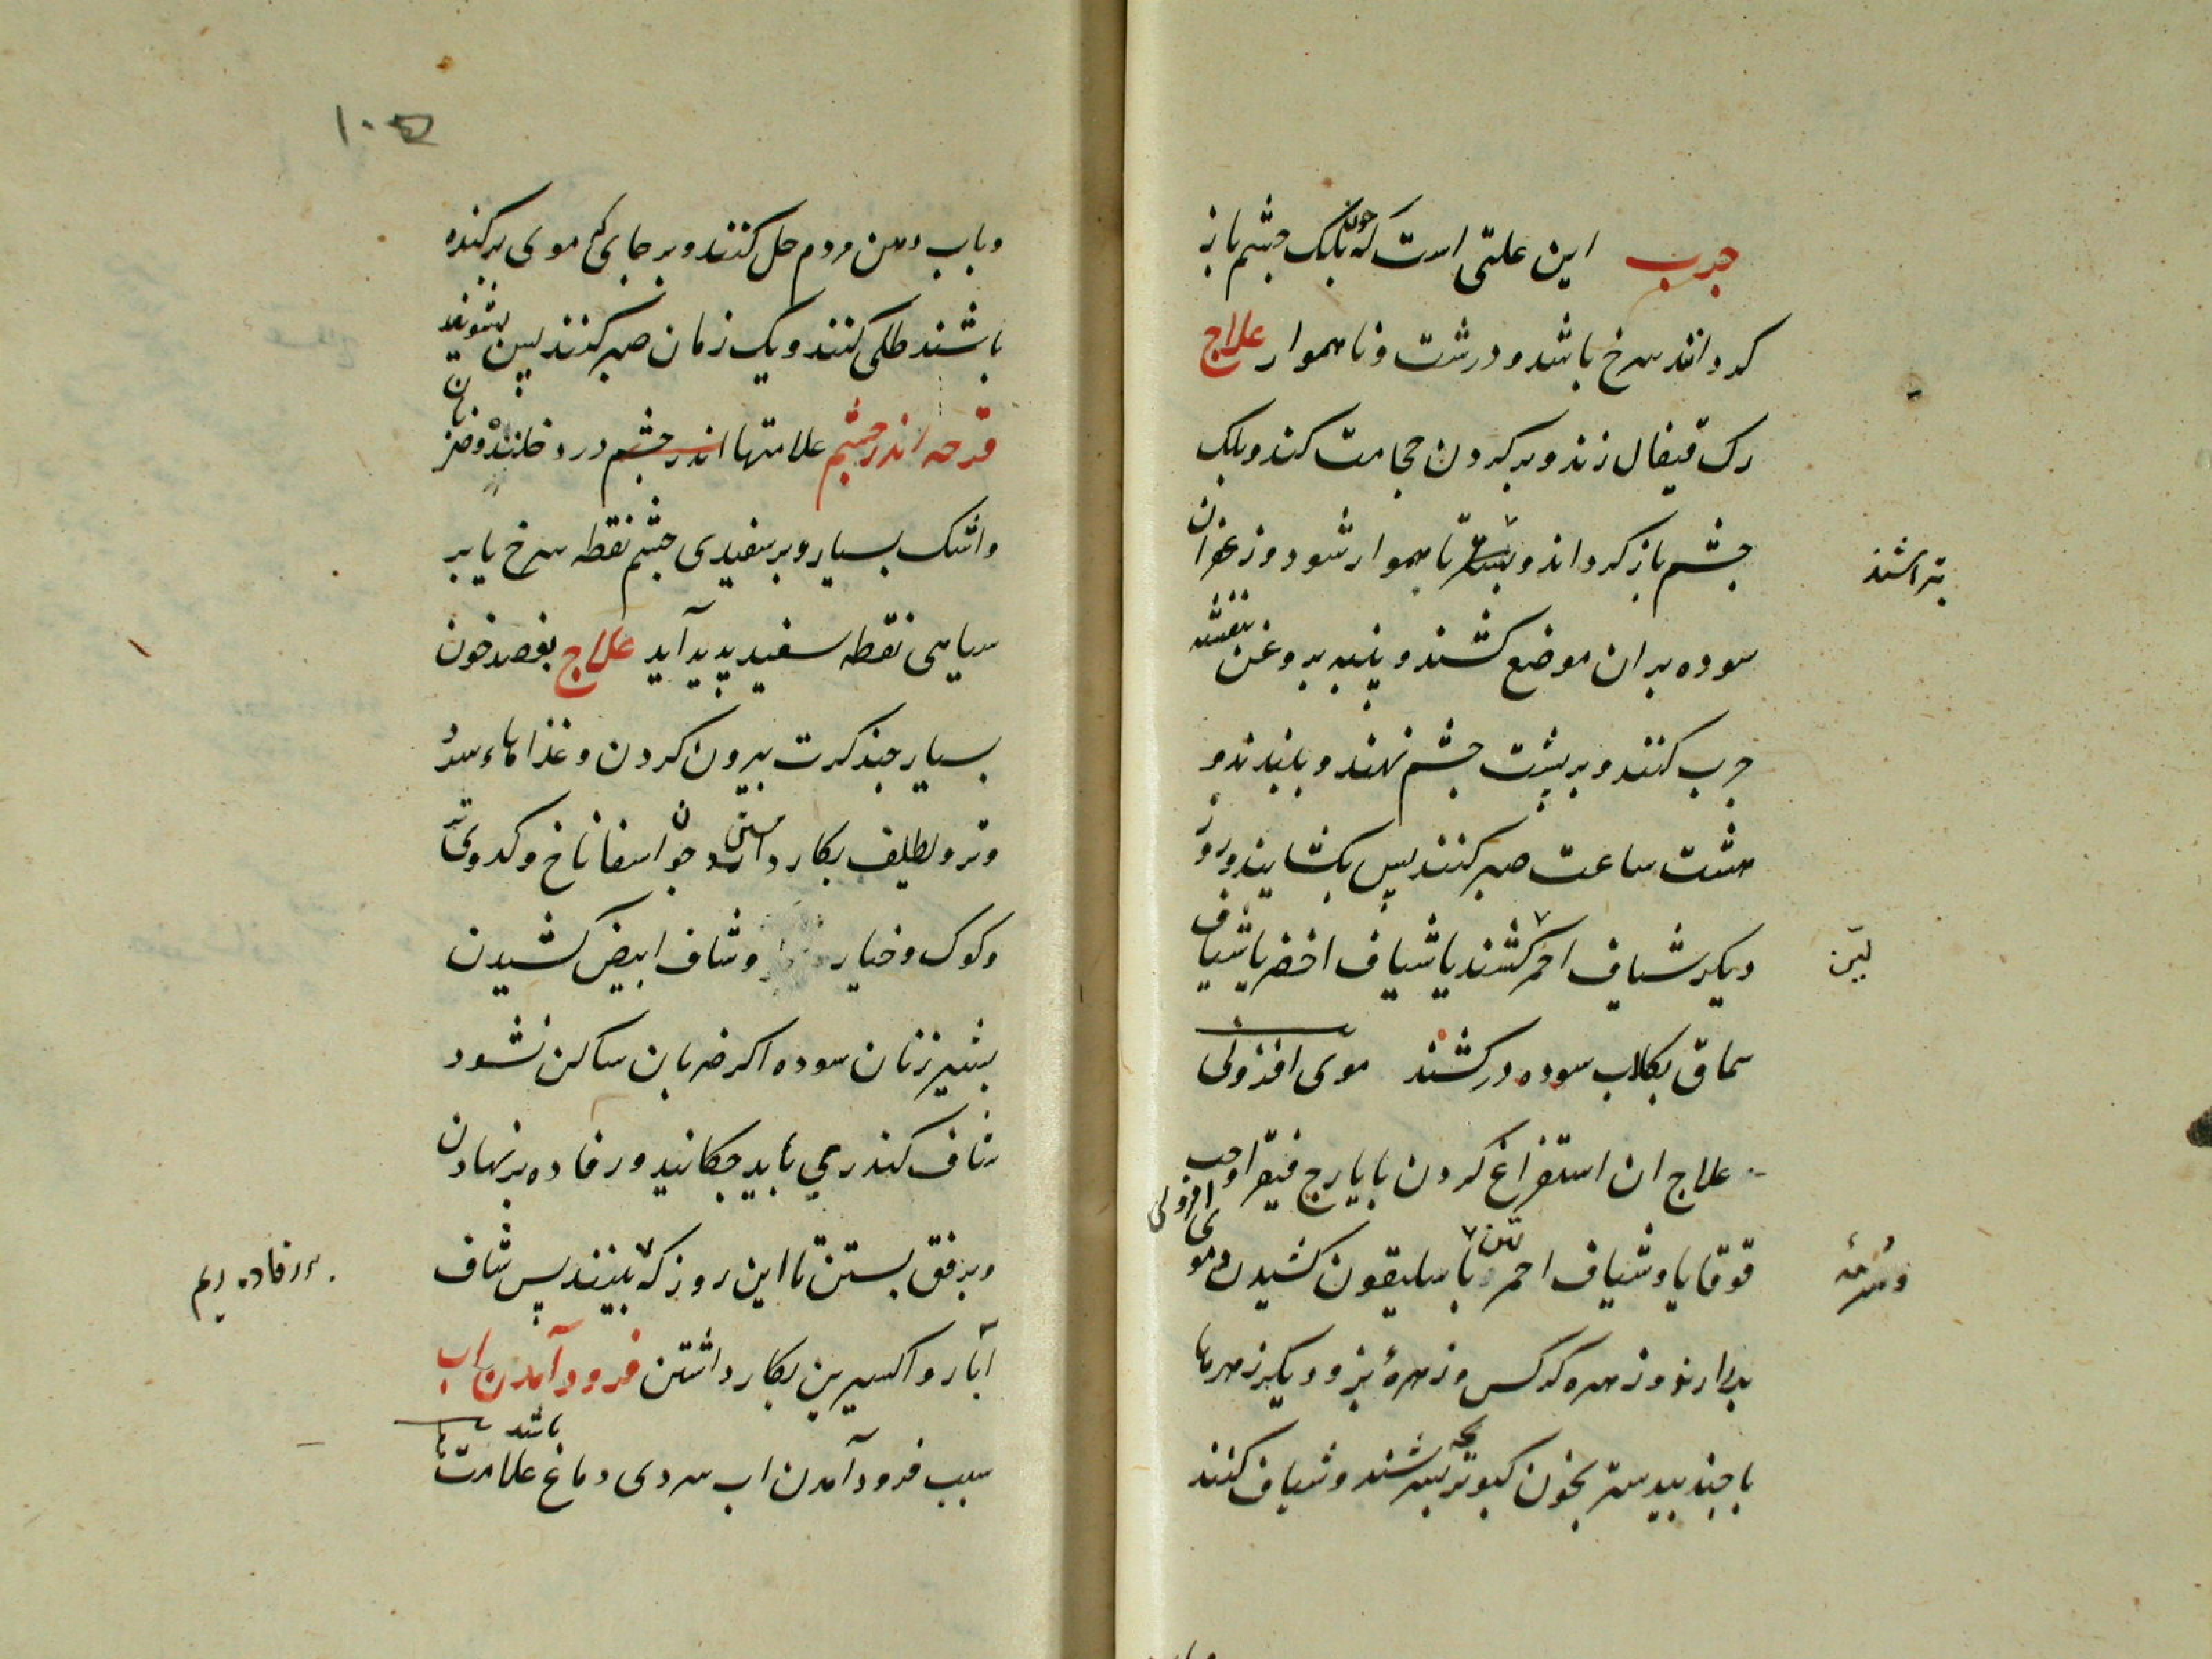 جرب این علتی است که چون بلک جشم باز
کرداند سرخ باشد و درشت و ناهموار علاج
رک قیفال زند و بر کردن حجامت کند و بلک
جشم باز کرداند و بشکر تا هموار شود و زعفران
بتراشند
سوده بر ان موضع کشند و پنبه بروغن بنفشه
جرب کنند و بر بشت جشم نهند و ببندند و
هشت ساعت صبر کنند پس بکشایند و روز
دیکر شیاف احمر کشند یا شیاف اخضر یا شیاف
لیّن
سماق بکلاب سوده در کشند موی افزونی
علاج ان استفراغ کردن بایارج فیقرا و حب
قوقایا و شیاف احمر لین با سلیقون کشیدن و موی افزونی
بردارند و زهره کرکس و زهرهٔ بز و دیکر زهرها
با جند بیدستر بخون کبوتر بچه بسرشند و شیاف کنند
۱۰۵
و باب دهن مردم حل کنند و بر جای که موی برکنده
باشند طلی کنند و یک زمان صبر کنند پس بشویند
قرحه اندر جشم علامتها اندر جشم درد خلنده و ضربان
و اشک بسیار و بر سفیدی جشم نقطه سرخ یا بر
سیاهی نقطه سفید پدید آید علاج بفصد خون
بسیار جند کرت بیرون کردن و غذاهاء سرد
و تر و لطیف بکار داشتن جون اسفاناخ و کدوی تر
و کوک و خیار و شاف ابیض کشیدن
بشیر زنان سوده اکر ضربان ساکن نشود
شاف کندری باید جکانید و رفاده بر نهادن
و برفق بستن تا این روز که ببینند پس شاف
رفاده ریم
آبار و اکسیرین بکار داشتن فرود آمدن اب
سبب فرود آمدن اب سردی دماغ باشد علامتها